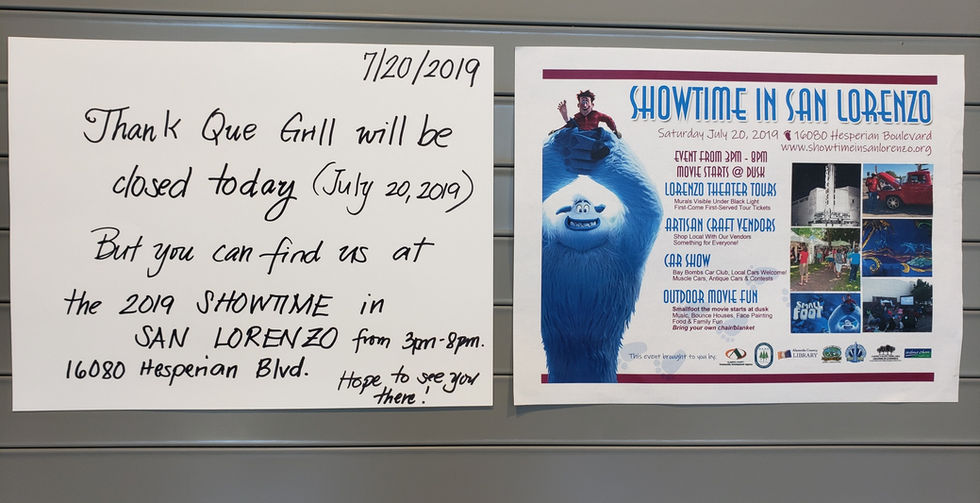 7/20/2019
Thank Que Grill will be
closed today (July 20, 2019)
But you can find us at
the 2019 SHOWTIME in
SAN LORENZO from 3pm-8pm.
16080 Hesperian Blvd.
Hope to see you
there!
SHOWTIME IN SAN LORENZO
Saturday July 20, 2019 16080 Hesperian Boulevard
www.showtimeinsanlorenzo.org
EVENT FROM 3PM - 8PM
MOVIE STARTS @ DUSK
LORENZO THEATER TOURS
Murals Visible Under Black Light
First-Come First-Served Tour Tickets
ARTISAN CRAFT VENDORS
Shop Local With Our Vendors
Something for Everyone!
CAR SHOW
Bay Bombs Car Club, Local Cars Welcome!
Muscle Cars, Antique Cars & Contests
OUTDOOR MOVIE FUN
Smallfoot the movie starts at dusk
Music, Bounce Houses, Face Painting
Food & Family Fun
Bring your own chair/blanket
SMALL
FOOT
This event brought to you by:
Alameda County
LIBRARY